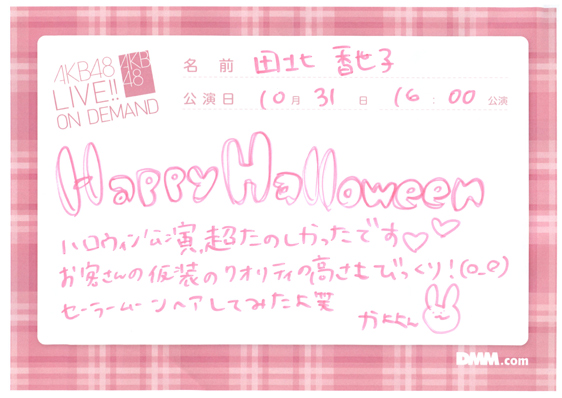 AKB48
LIVE!!
ON DEMAND
AKB
48
名前 田北 香世子
公演日 10月31日 16:00公演
Happy Halloween
ハロウィン公演、超たのしかったです♡♡
お客さんの仮装のクオリティの高さもびっくり!(o_o)
セーラームーンヘアしてみたよ笑
かよよん
DMM.com